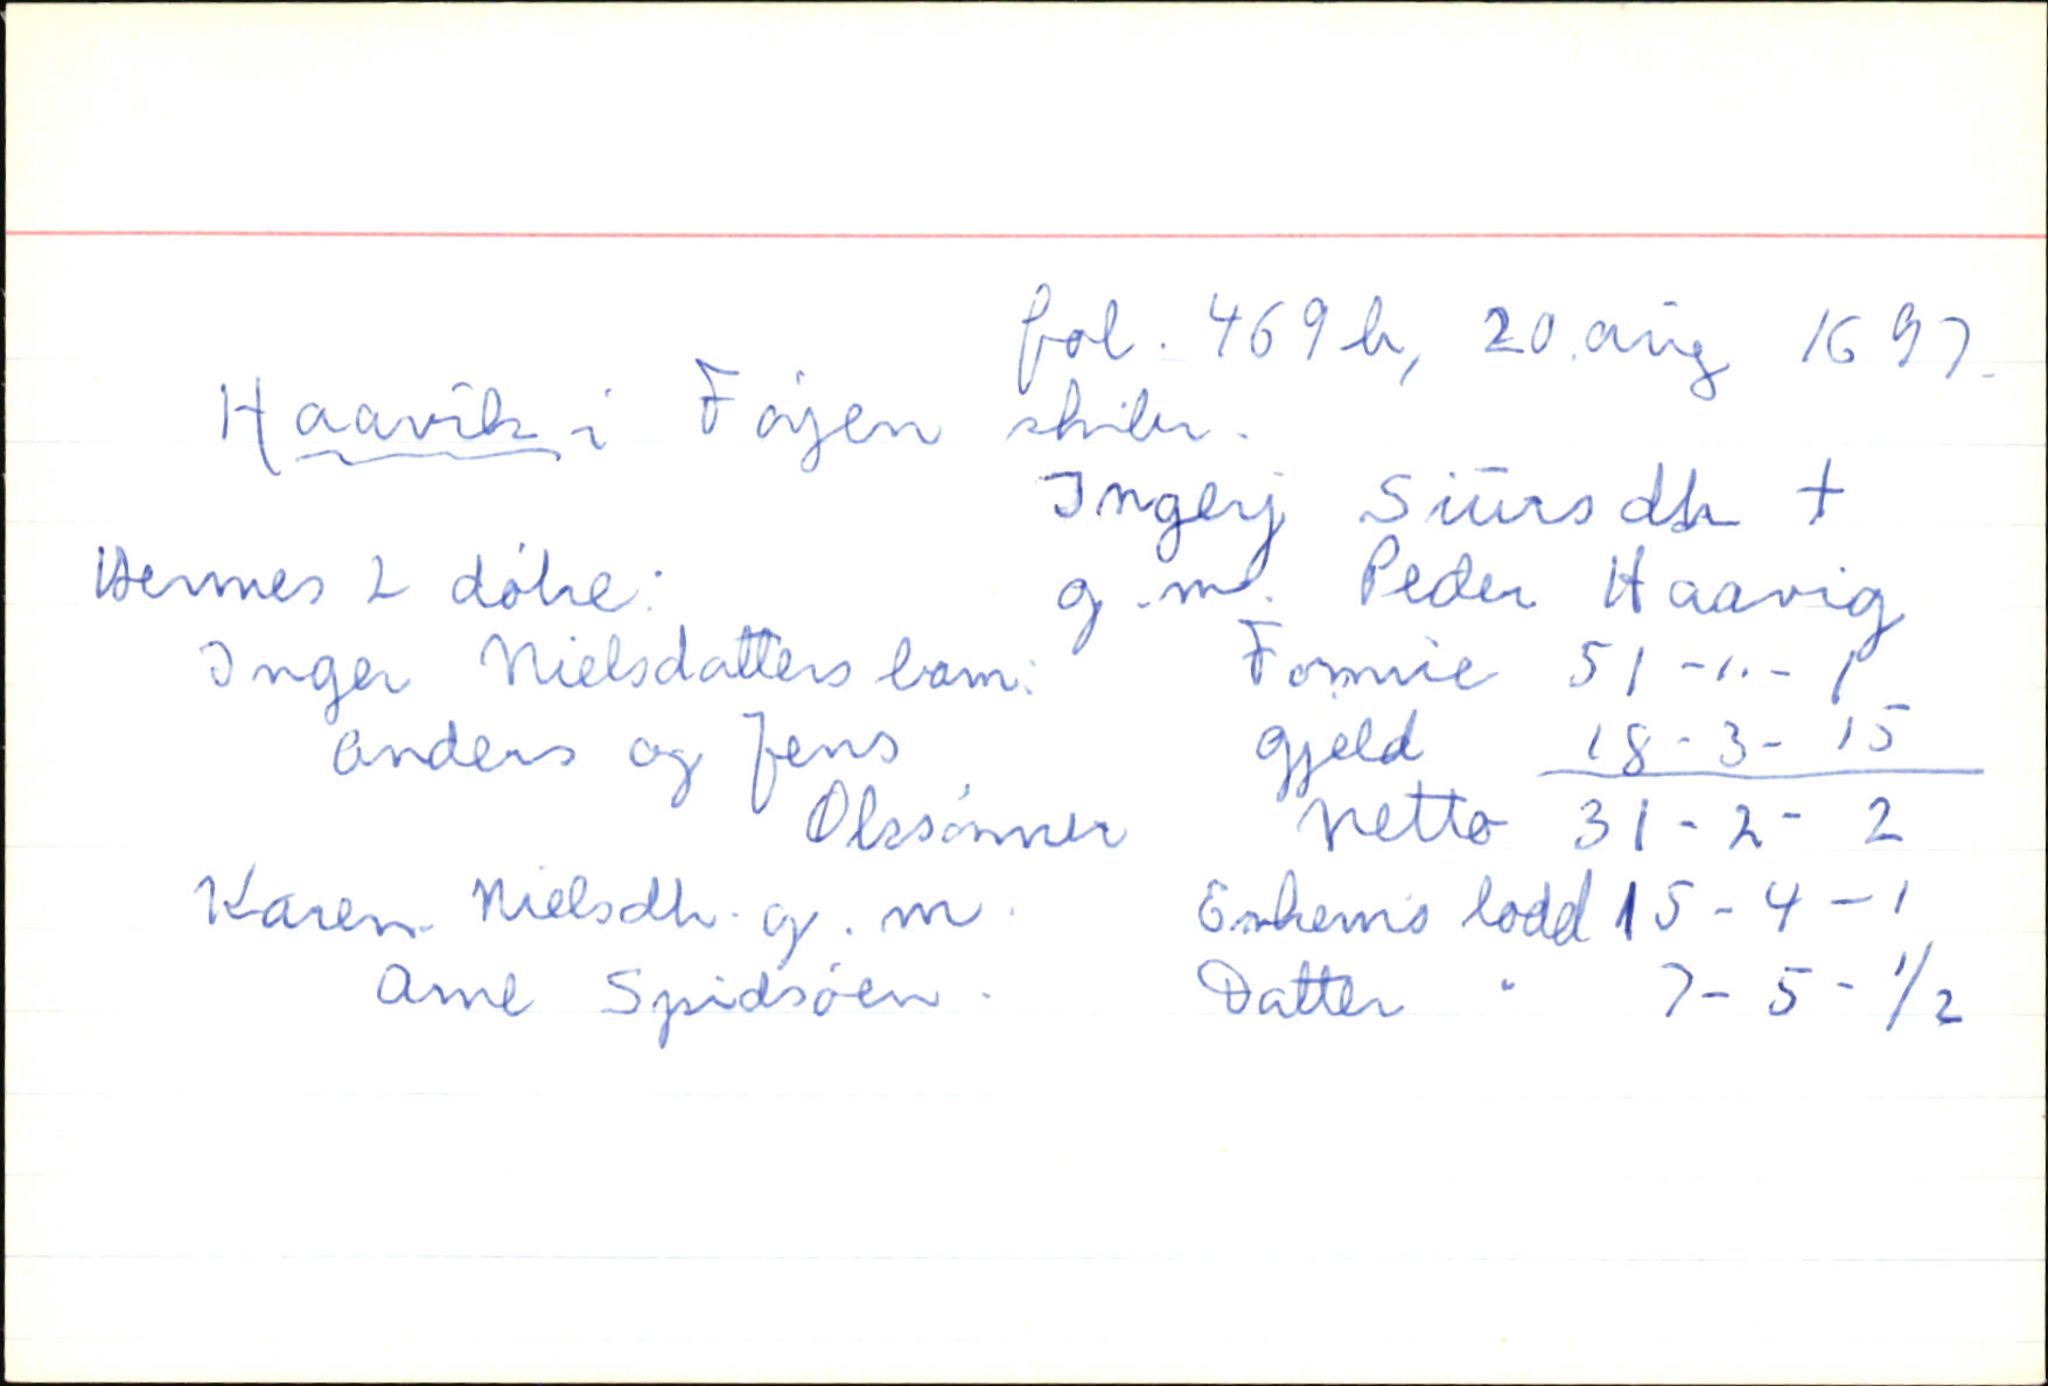 fol. 469 b, 20. aug 1697.
Haavik i Føyen skibr.
Ingerj Siursdtr †
Hennes 2 døtre: g.m. Peder Haavig
Inger Nielsdatters barn: Formue 51-"-1
Anders og Jens gjeld 18-3-15
Olssønner Netto 31-2-2
Karen Nielsdtr. g.m. Enkems lodd 15-4-1
Arne Spidsøen. Datter " 7-5-1/2